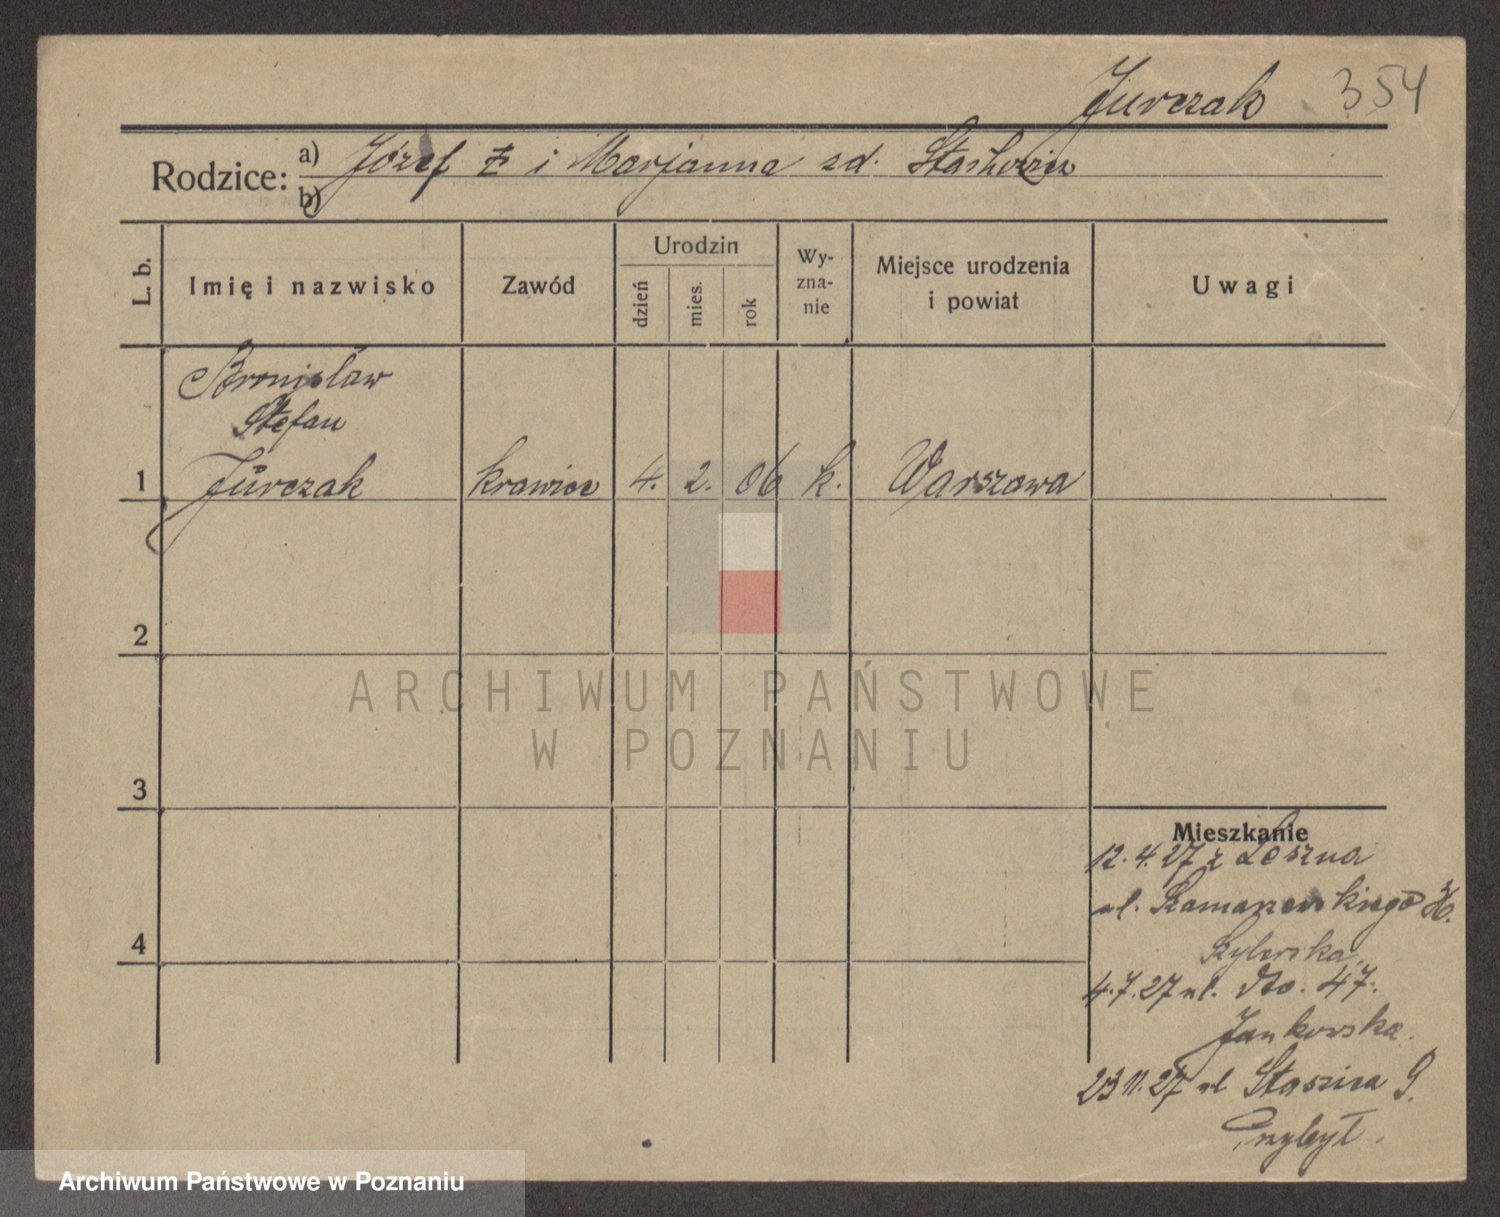 Jurczak 354
Rodzice: a) Józef i Marjanna zd. Stachowicz
b)
L. b.
Imię i nazwisko
Zawód
Urodzin
dzień
mies.
rok
Wy-
zna-
nie
Miejsce urodzenia
i powiat
Uwagi
Bronisław
Stefan
1 Jurczak krawiec 4. 2. 06 k. Warszawa
2
ARCHIWUM PAŃSTWOWE
W POZNANIU
3
Mieszkanie
12.4.27 z Leszna
ul.
4
4.7.27 ul. 47.
Jankowska.
23 11.27 ul Staszica 9.
Przybył.
Archiwum Państwowe w Poznaniu